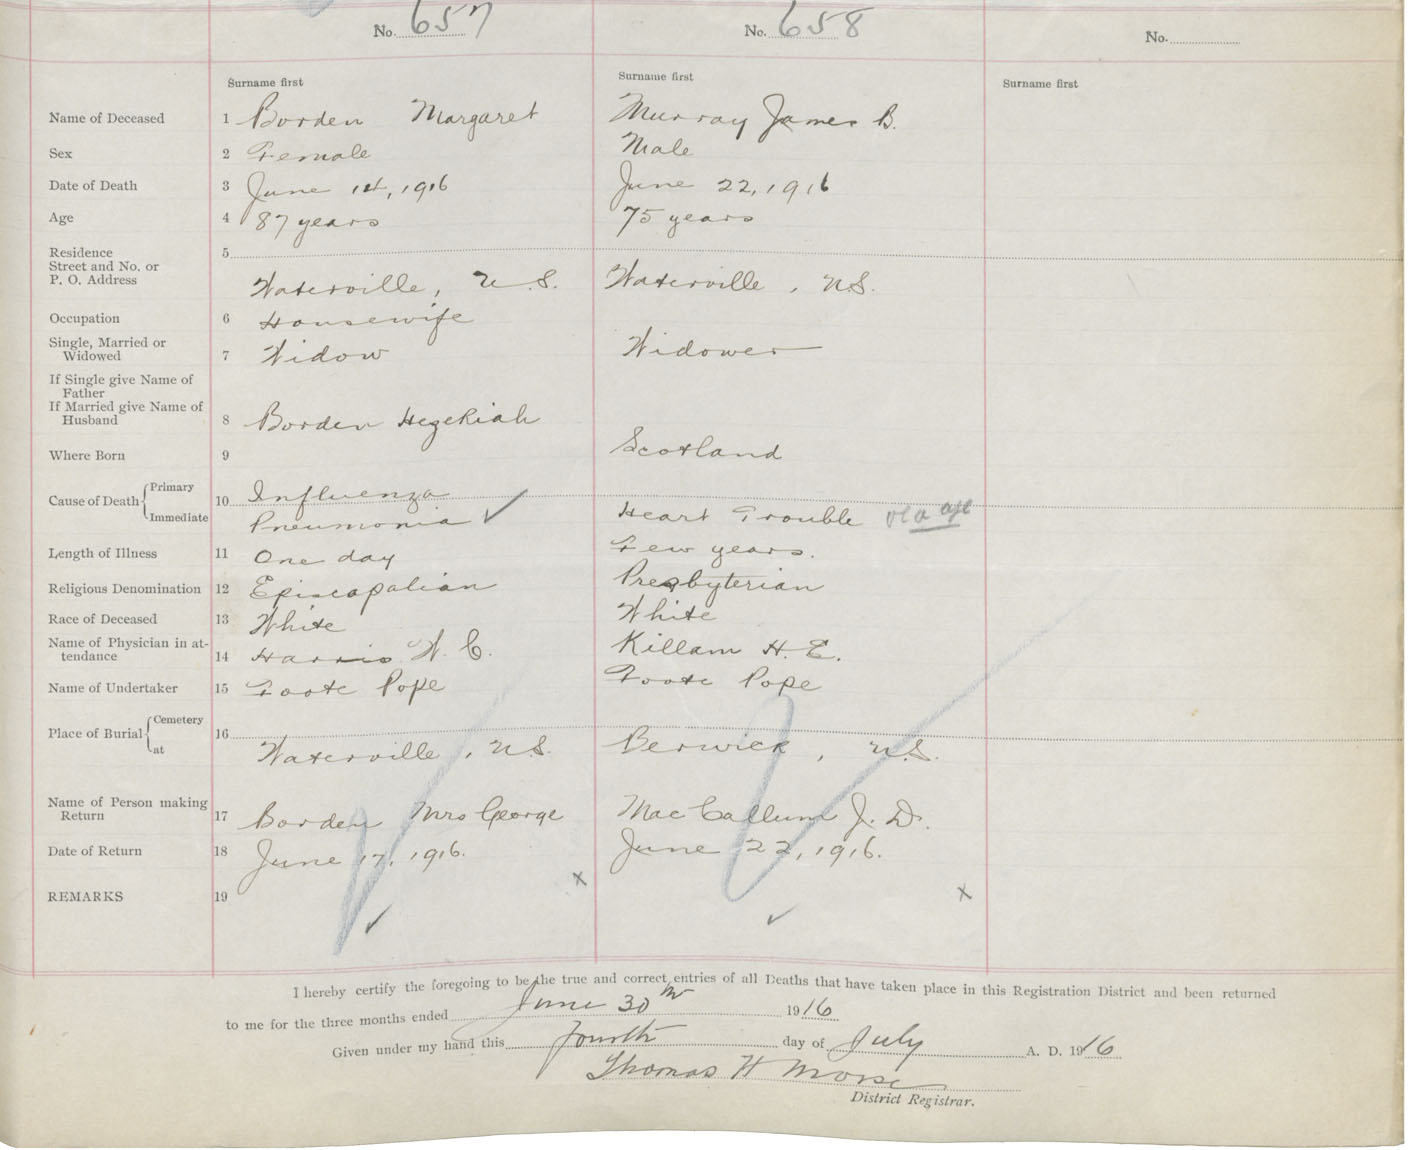 No. 657 No. 658 No.
Surname first Surname first Surname first
Name of Deceased 1 Borden Margaret Murray James B.
Sex 2 Female Male
Date of Death 3 June 14, 1916 June 22, 1916
Age 4 87 years 75 years
Residence 5
Street and No. or
P. O. Address Waterville, N.S. Waterville, N.S.
Occupation 6 Housewife
Single, Married or
Widowed 7 Widow Widower
If Single give Name of
Father
If Married give Name of
Husband 8 Borden Hezekiah
Where Born 9 Scotland
Cause of Death { Primary 10 Influenza
Immediate Pneumonia ✓ Heart Trouble old age
Length of Illness 11 One day Few years.
Religious Denomination 12 Episcopalian Presbyterian
Race of Deceased 13 White White
Name of Physician in at-
tendance 14 Harris W. C. Killam H. E.
Name of Undertaker 15 Foote Pope Foote Pope
Place of Burial { Cemetery 16
at Waterville, N.S. Berwick, N.S.
Name of Person making
Return 17 Borden Mrs George MacCallum J. D.
Date of Return 18 June 17, 1916. June 22, 1916.
REMARKS 19 x x
✓ ✓
I hereby certify the foregoing to be the true and correct entries of all Deaths that have taken place in this Registration District and been returned
to me for the three months ended June 30th 1916
Given under my hand this fourth day of July A. D. 1916
Thomas H Morse
District Registrar.